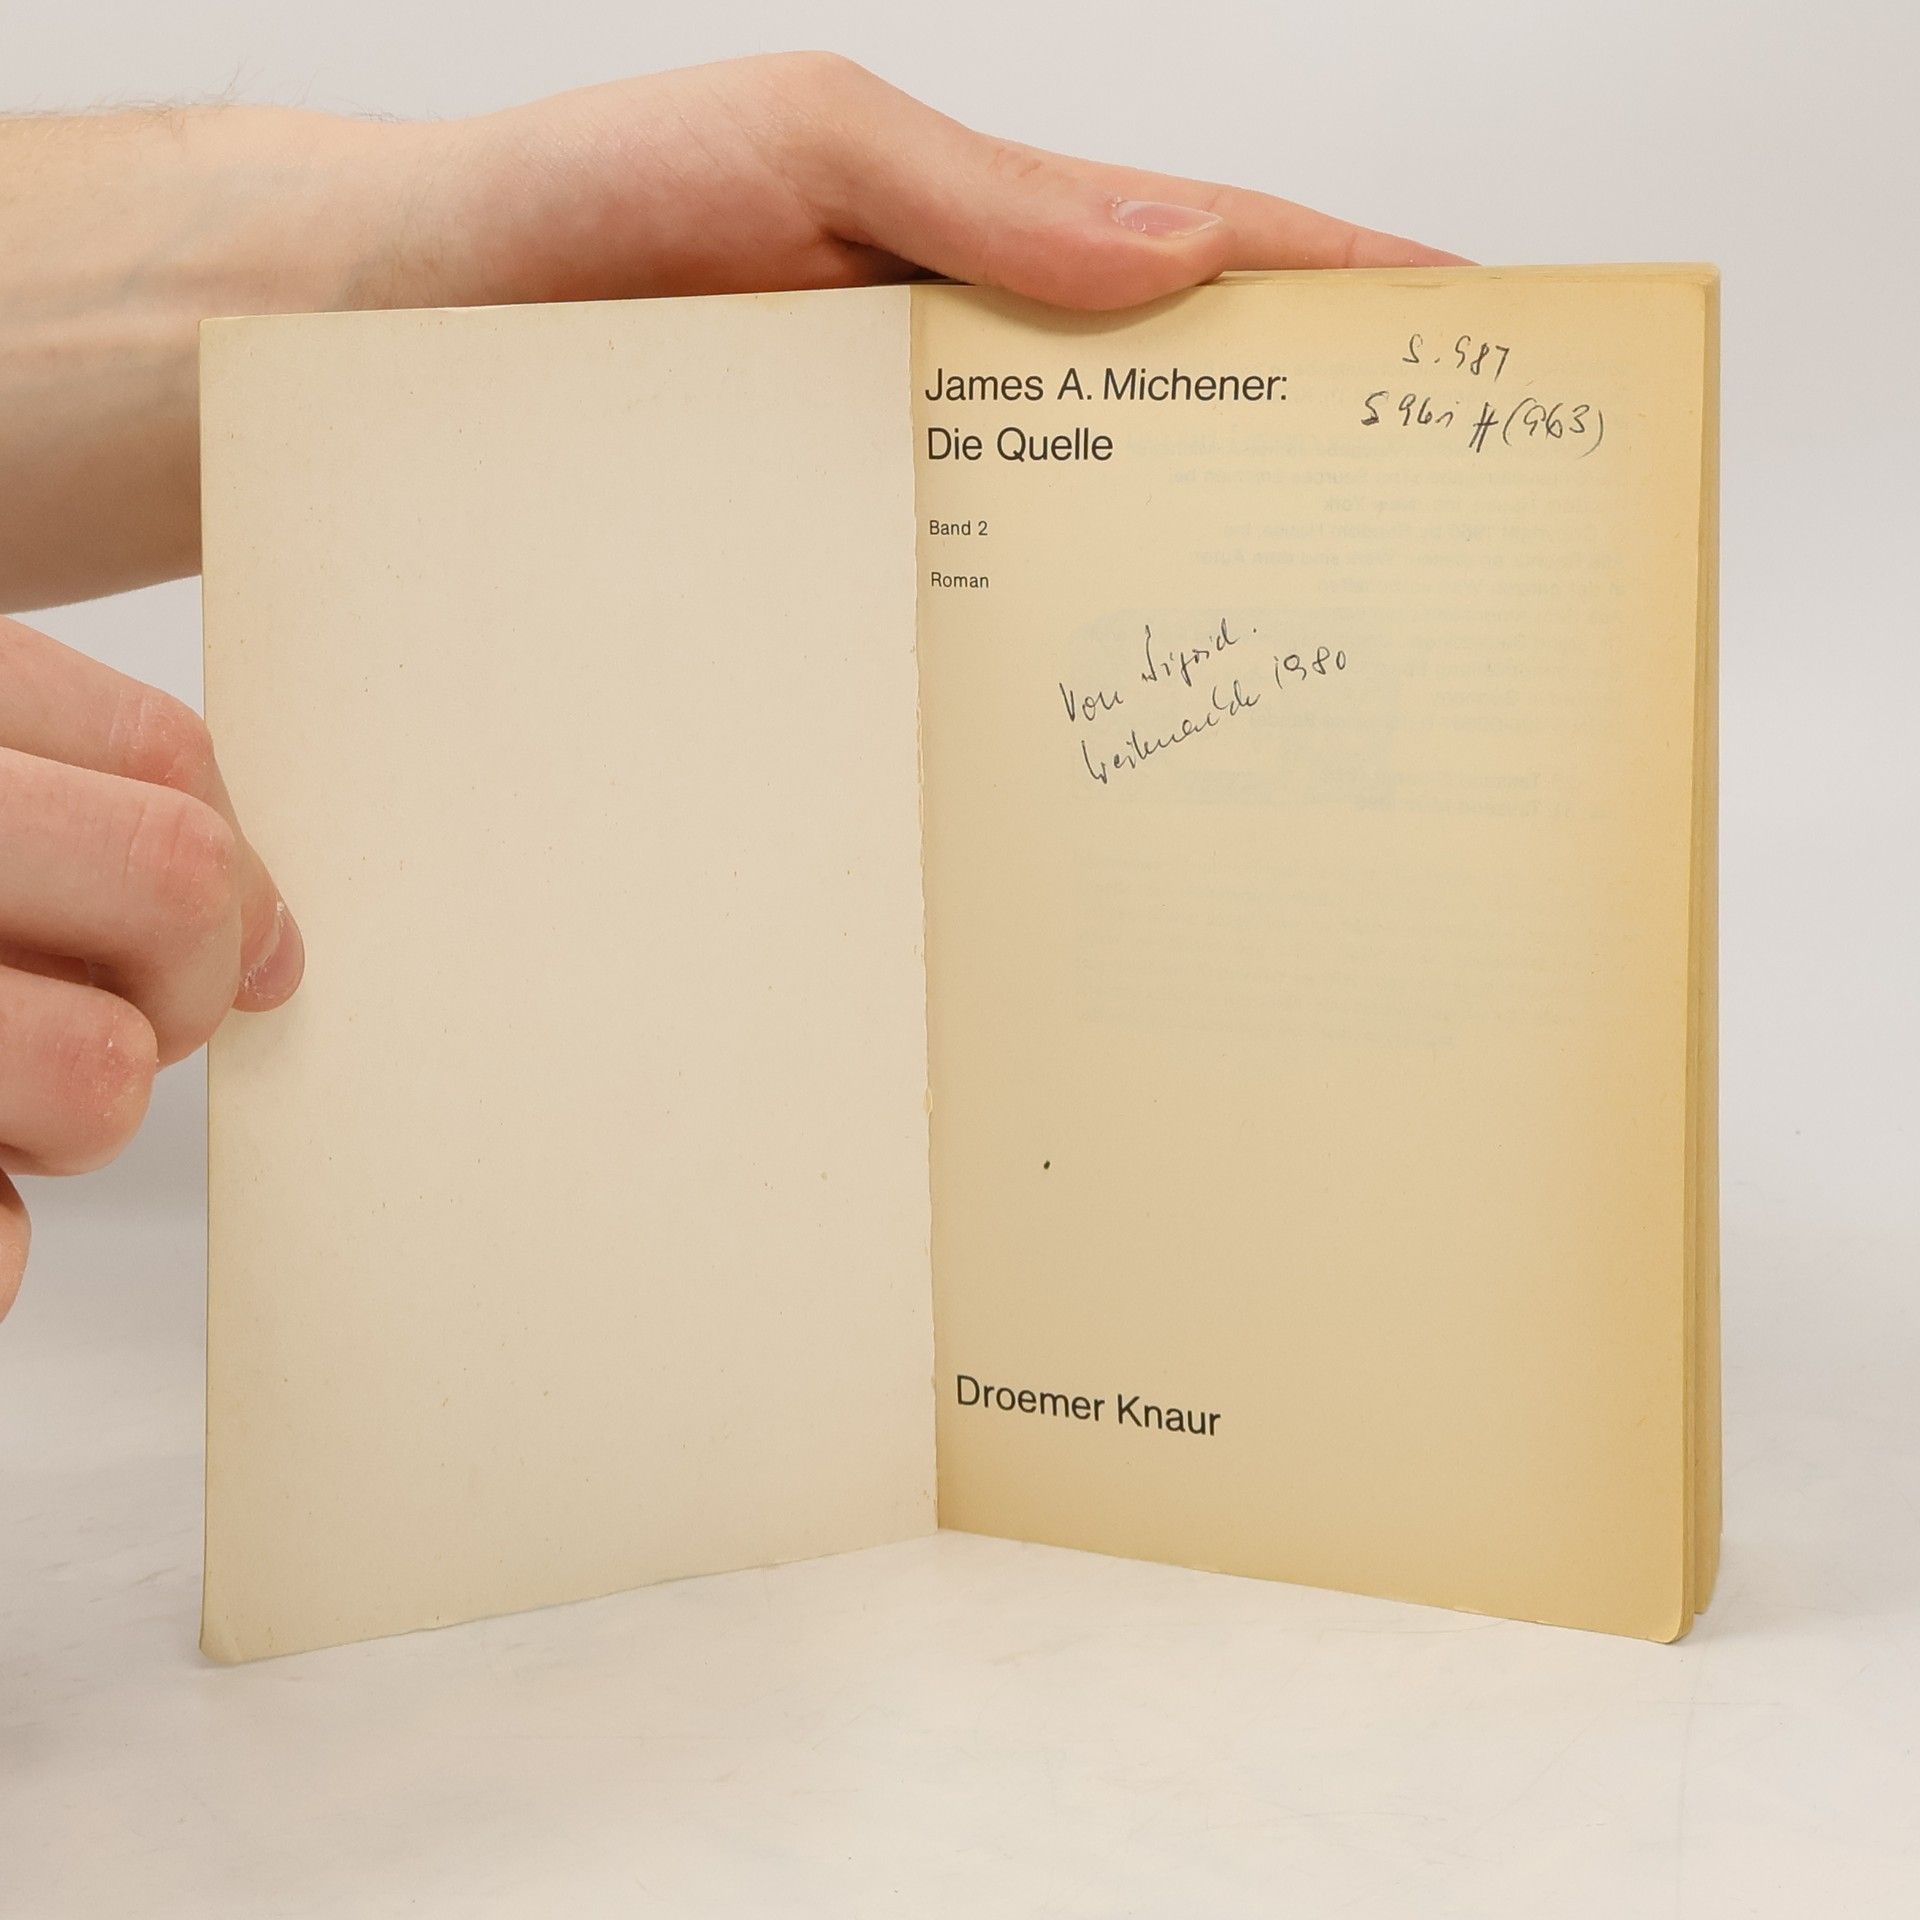 James A. Michener:
Die Quelle
Band 2
Roman
S. 987
S 961 ff (963)
Von Sigrid.
Weihnachten 1980
Droemer Knaur